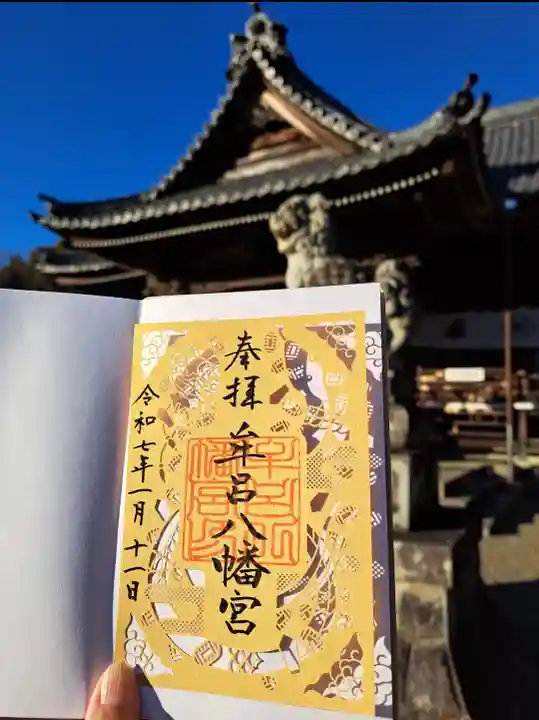 奉拝
牟呂八幡宮
令和七年一月十一日